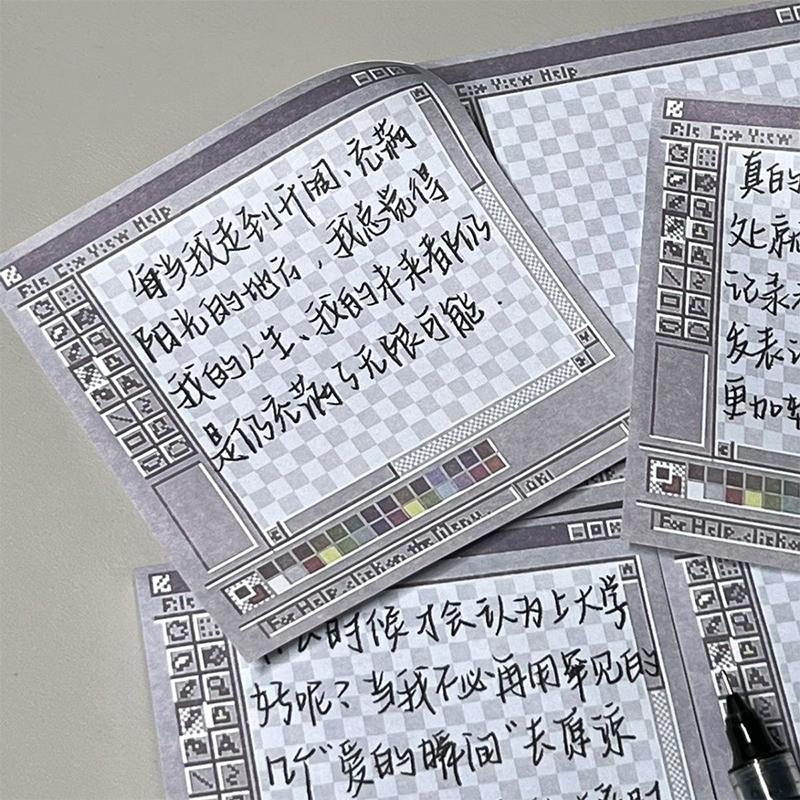 File Edit View Help
每当我走到开阔、充满
阳光的地方，我总觉得
我的人生、我的未来都仍
是仍充满了无限可能.
For Help, click on the Menu.
View Help
File Edit View
真的
处
记录
发表
更加
For Help, click on
File
时候才会认为上大学
好呢？当我不必再用罕见的
几个“爱的瞬间”去原谅
File